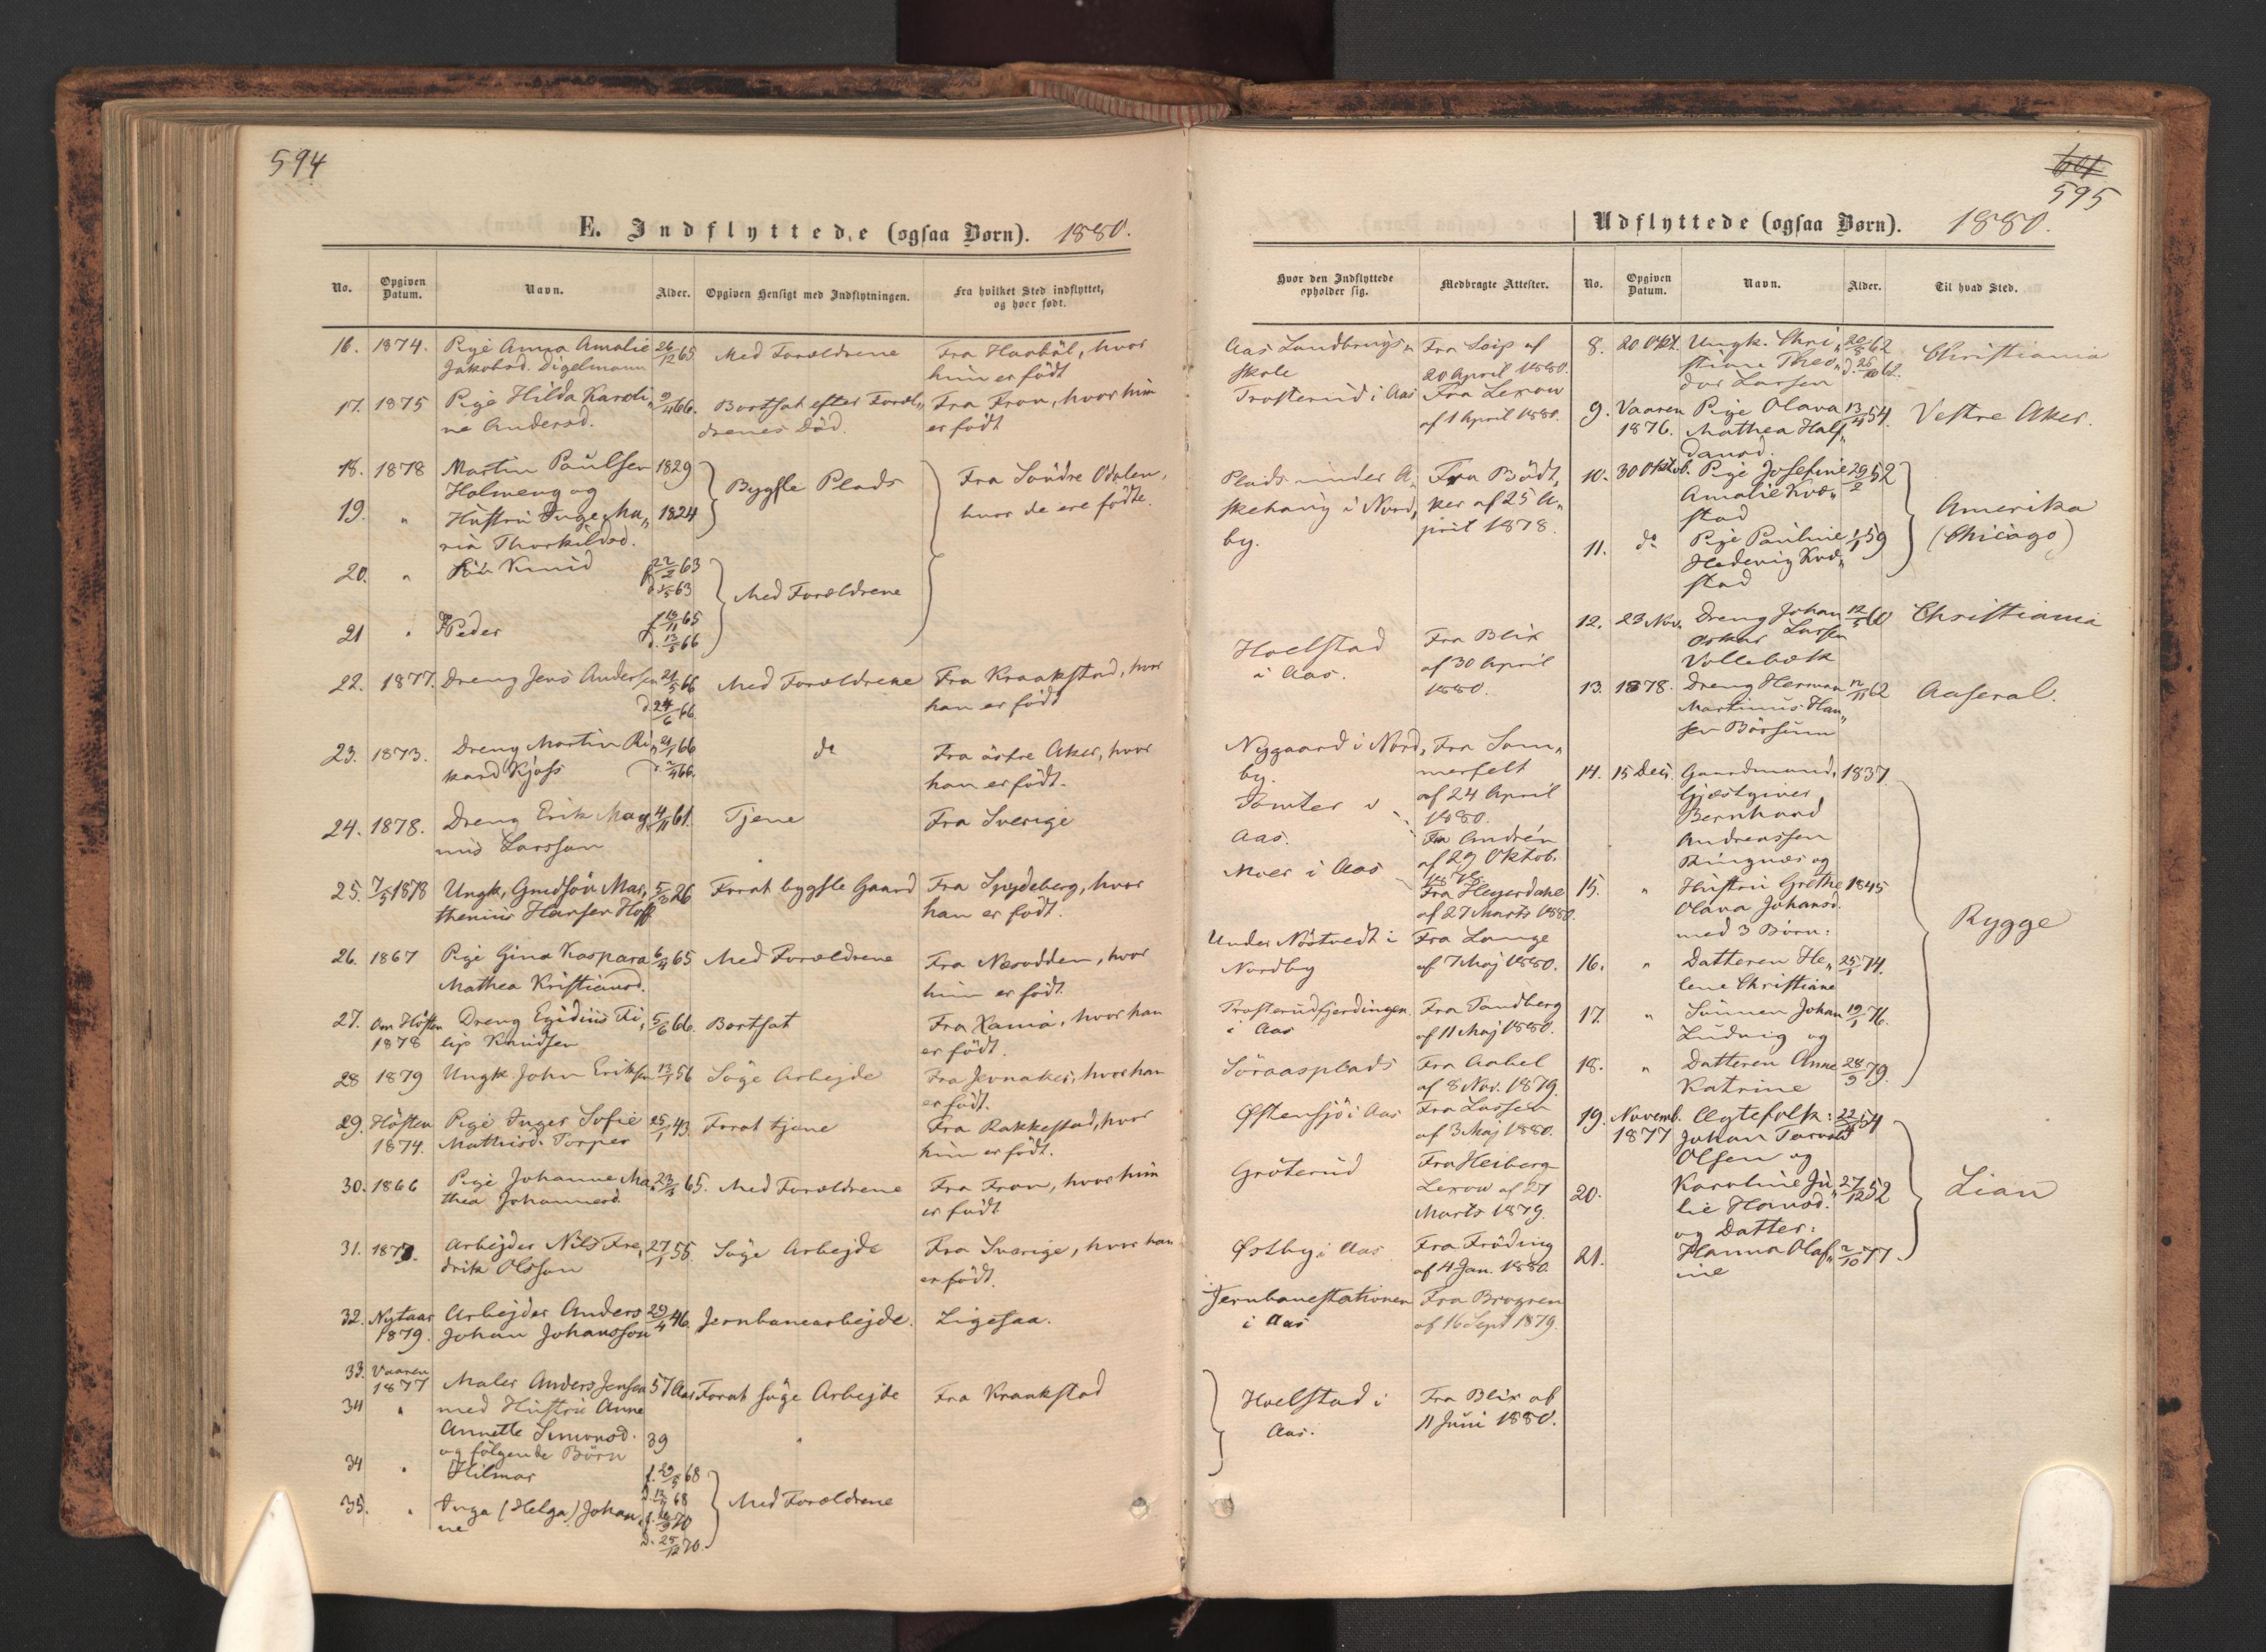 594
E. Indflyttede (ogsaa Børn). 1880.
No. Opgiven Datum. Navn. Alder. Opgiven Hensigt med Indflytningen. Fra hvilket Sted indflyttet, og hvor født.
16. 1874. Pige Anna Amalie 26/12 65 Med Forældrene Fra Haabøl, hvor
Jakobsd. Digelmann hun er född
17. 1875 Pige Hilda Karoli„ 9/4 66. Bortsat efter Foræl„ Fra Fron, hvor hun
ne Andersd. drenes Död. er född
18. 1878 Martin Paulsen 1829 Bygsle Plads Fra Söndre Odalen,
Holmeng og hvor de ere födte.
19. „ Hustru Inge Ma„ 1824
ria Thorkildsd.
20. „ Knud f. 22/2 63 Med Forældrene
d. 63
21 „ Peder f. 65
d. 13/5 66
22. 1877. Dreng Jens Andersen 21/5 66 Med Forældrene Fra Kraakstad, hvor
d. 24/6 66. han er född
23. 1873. Dreng Martin Ri„ 21/1 66 do Fra östre Aker, hvor
kard Kjøss d. 2/4 66. han er född.
24. 1878. Dreng Erik Mag„ 4/11 61. Tjene Fra Sverige
nus Larsson
25. 7/5 1878 Ungk. Gmdsön Mar„ 26 Forat bygsle Gaard Fra Spydeberg, hvor
thenius Hansen Hoff han er född.
26. 1867 Pige Gina Kaspara 6/4 65 Med Forældrene Fra Næsodden, hvor
Mathea Kristiansd. hun er född.
27. Om Hösten Dreng Egidius Fi„ 5/6 66. Bortsat Fra Xania, hvor han
1878 lip Knudsen er född.
28 1879 Ungk. John Eriksen 13/1 56 Söge Arbejde Fra Jevnaker, hvor han
er född.
29. Hösten Pige Inger Sofie 25/1 43. Forat tjene Fra Rakkestad, hvor
1874. Mathisd. Torper hun er född.
30. 1866 Pige Johanne Ma„ 65. Med Forældrene Fra Fron, hvor hun
thea Johannesd. er född
31. Arbejder Nils Fre„ 27/1 55. Söge Arbejde Fra Sverige, hvor han
drik Olsson er född.
32. Nytaar Arbejder Anders 29/4 46. Jernbanearbejde. Ligesaa.
1879. Johan Johansson
33. Vaaren
1877 Maler Anders Jensen 57 Aar Forat söge Arbejde Fra Kraakstad
34 „ med Hustru Anne
Annette Simonsd. 39
og følgende Börn
34 „ Hilmar f. 29/5 68 Med Forældrene
d. 68
35. „ Inga (Helga) Johan„ f. 70
ne d. 25/12 70.
601
595
Udflyttede (ogsaa Børn). 1880.
Hvor den Indflyttede opholder sig. Medbragte Attester. No. Opgiven Datum. Navn. Alder. Til hvad Sted.
Aas Landbrugs„ Fra Seip af
skole 20 April 1880.
Trosterud i Aas Fra Lexow
af 1 April 1880.
Plads under A„ Fra Bödt„
skehaug i Nord„ ker af 25 A„
by. pril 1878.
Holstad Fra Blix
i Aas. af 30 April
1880.
Nygaard i Nord„ Fra Som„
by. merfelt
af 24 April
1880.
Tomter i
Aas. Fra Andrén
af 29 Oktob.
Moer i Aas Fra Heyerdahl
af 27 Marts 1880.
Under Nöstvedt i Fra Lange
Nordby af 7 Maj 1880.
Trosterudfjerdingen Fra Tandberg
i Aas af 11 Maj 1880.
Söraasplads Fra Aabel
af 8 Nov. 1879.
Østensjö i Aas Fra Lassen
af 3 Maj 1880.
Gröterud Fra Heiberg
Lexow af 27
Marts 1879.
Østby i Aas Fra Fröding
af 4 Jan. 1880.
Jernbanestationen Fra Brogren
i Aas af 16 Sept 1879.
Holstad i Fra Blix af
Aas. 11 Juni 1880.
8. 20 Okt. Ungk. Chri„ 20/8 62 Christiania
stian Theo„ d. 26/10 62.
dor Larsen
9. Vaaren Pige Olava 13/4 54. Vestre Aker.
1876. Mathea Half„
dansd.
10. 30 Oktob. Pige Josefine 29/2 52 Amerika
Amalie Kvæ„ (Chicago)
stad
11. do Pige Pauline 1/1 59
Hedevig Kvæ„
stad
12. 23 Nov. Dreng Johan 12/5 60 Christiania
Oskar Larsen
Vollebæk
13. 1878. Dreng Herman 12/11 62 Aaseral.
Martinus Han„
sen Börsum
14. 15 Dec. Gaardmand, 1837. Rygge
Gjæstgiver
Bernhard
Andreassen
Ringnæs og
15. „ Hustru Grethe 1845
Olava Johansd.
med 3 Börn:
16. „ Datteren He„ 25/1 74.
lene Christiane
17. „ Sönnen Johan 19/1 76.
Ludvig og
18. „ Datteren Anne 28/3 79.
Katrine
19. Novemb. Ægtefolk: 22/4 54 Lian
1877 Johan Torvald
Olsen og
20. Karoline Ju„ 27/12 52
lie Hansd.
og Datter:
21. Hanna Olaf„ 2/10 77
ine